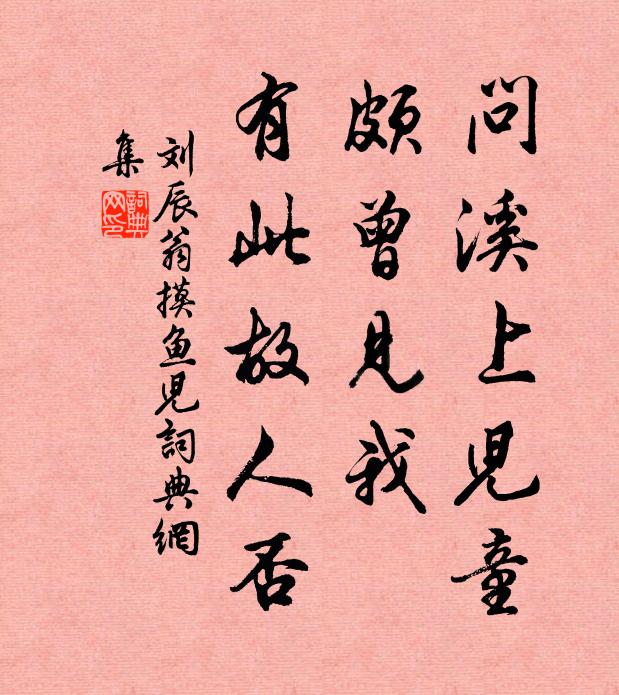 问溪上児童
颇曾见我
有此故人否
刘辰翁摸鱼児詞典網
集
詞典
网印